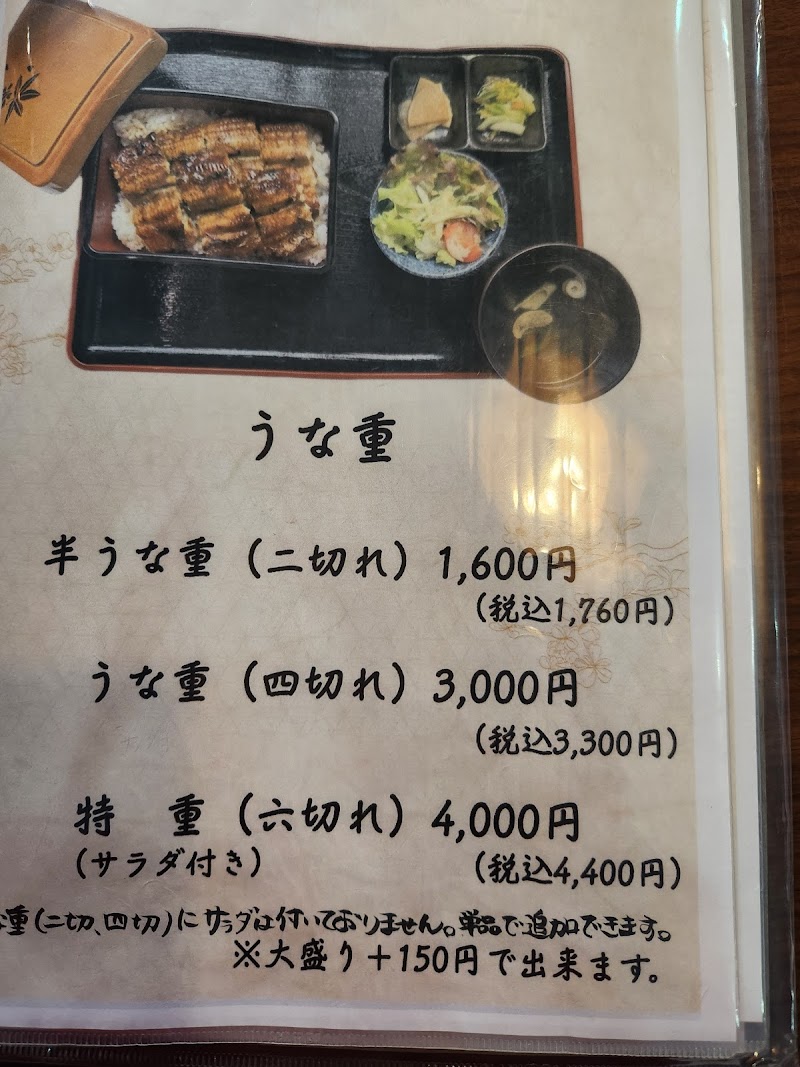 うな重
半うな重（二切れ）1,600円
（税込1,760円）
うな重（四切れ）3,000円
（税込3,300円）
特　重（六切れ）4,000円
（サラダ付き）　（税込4,400円）
重（二切、四切）にサラダは付いておりません。単品で追加できます。
※大盛り＋150円で出来ます。